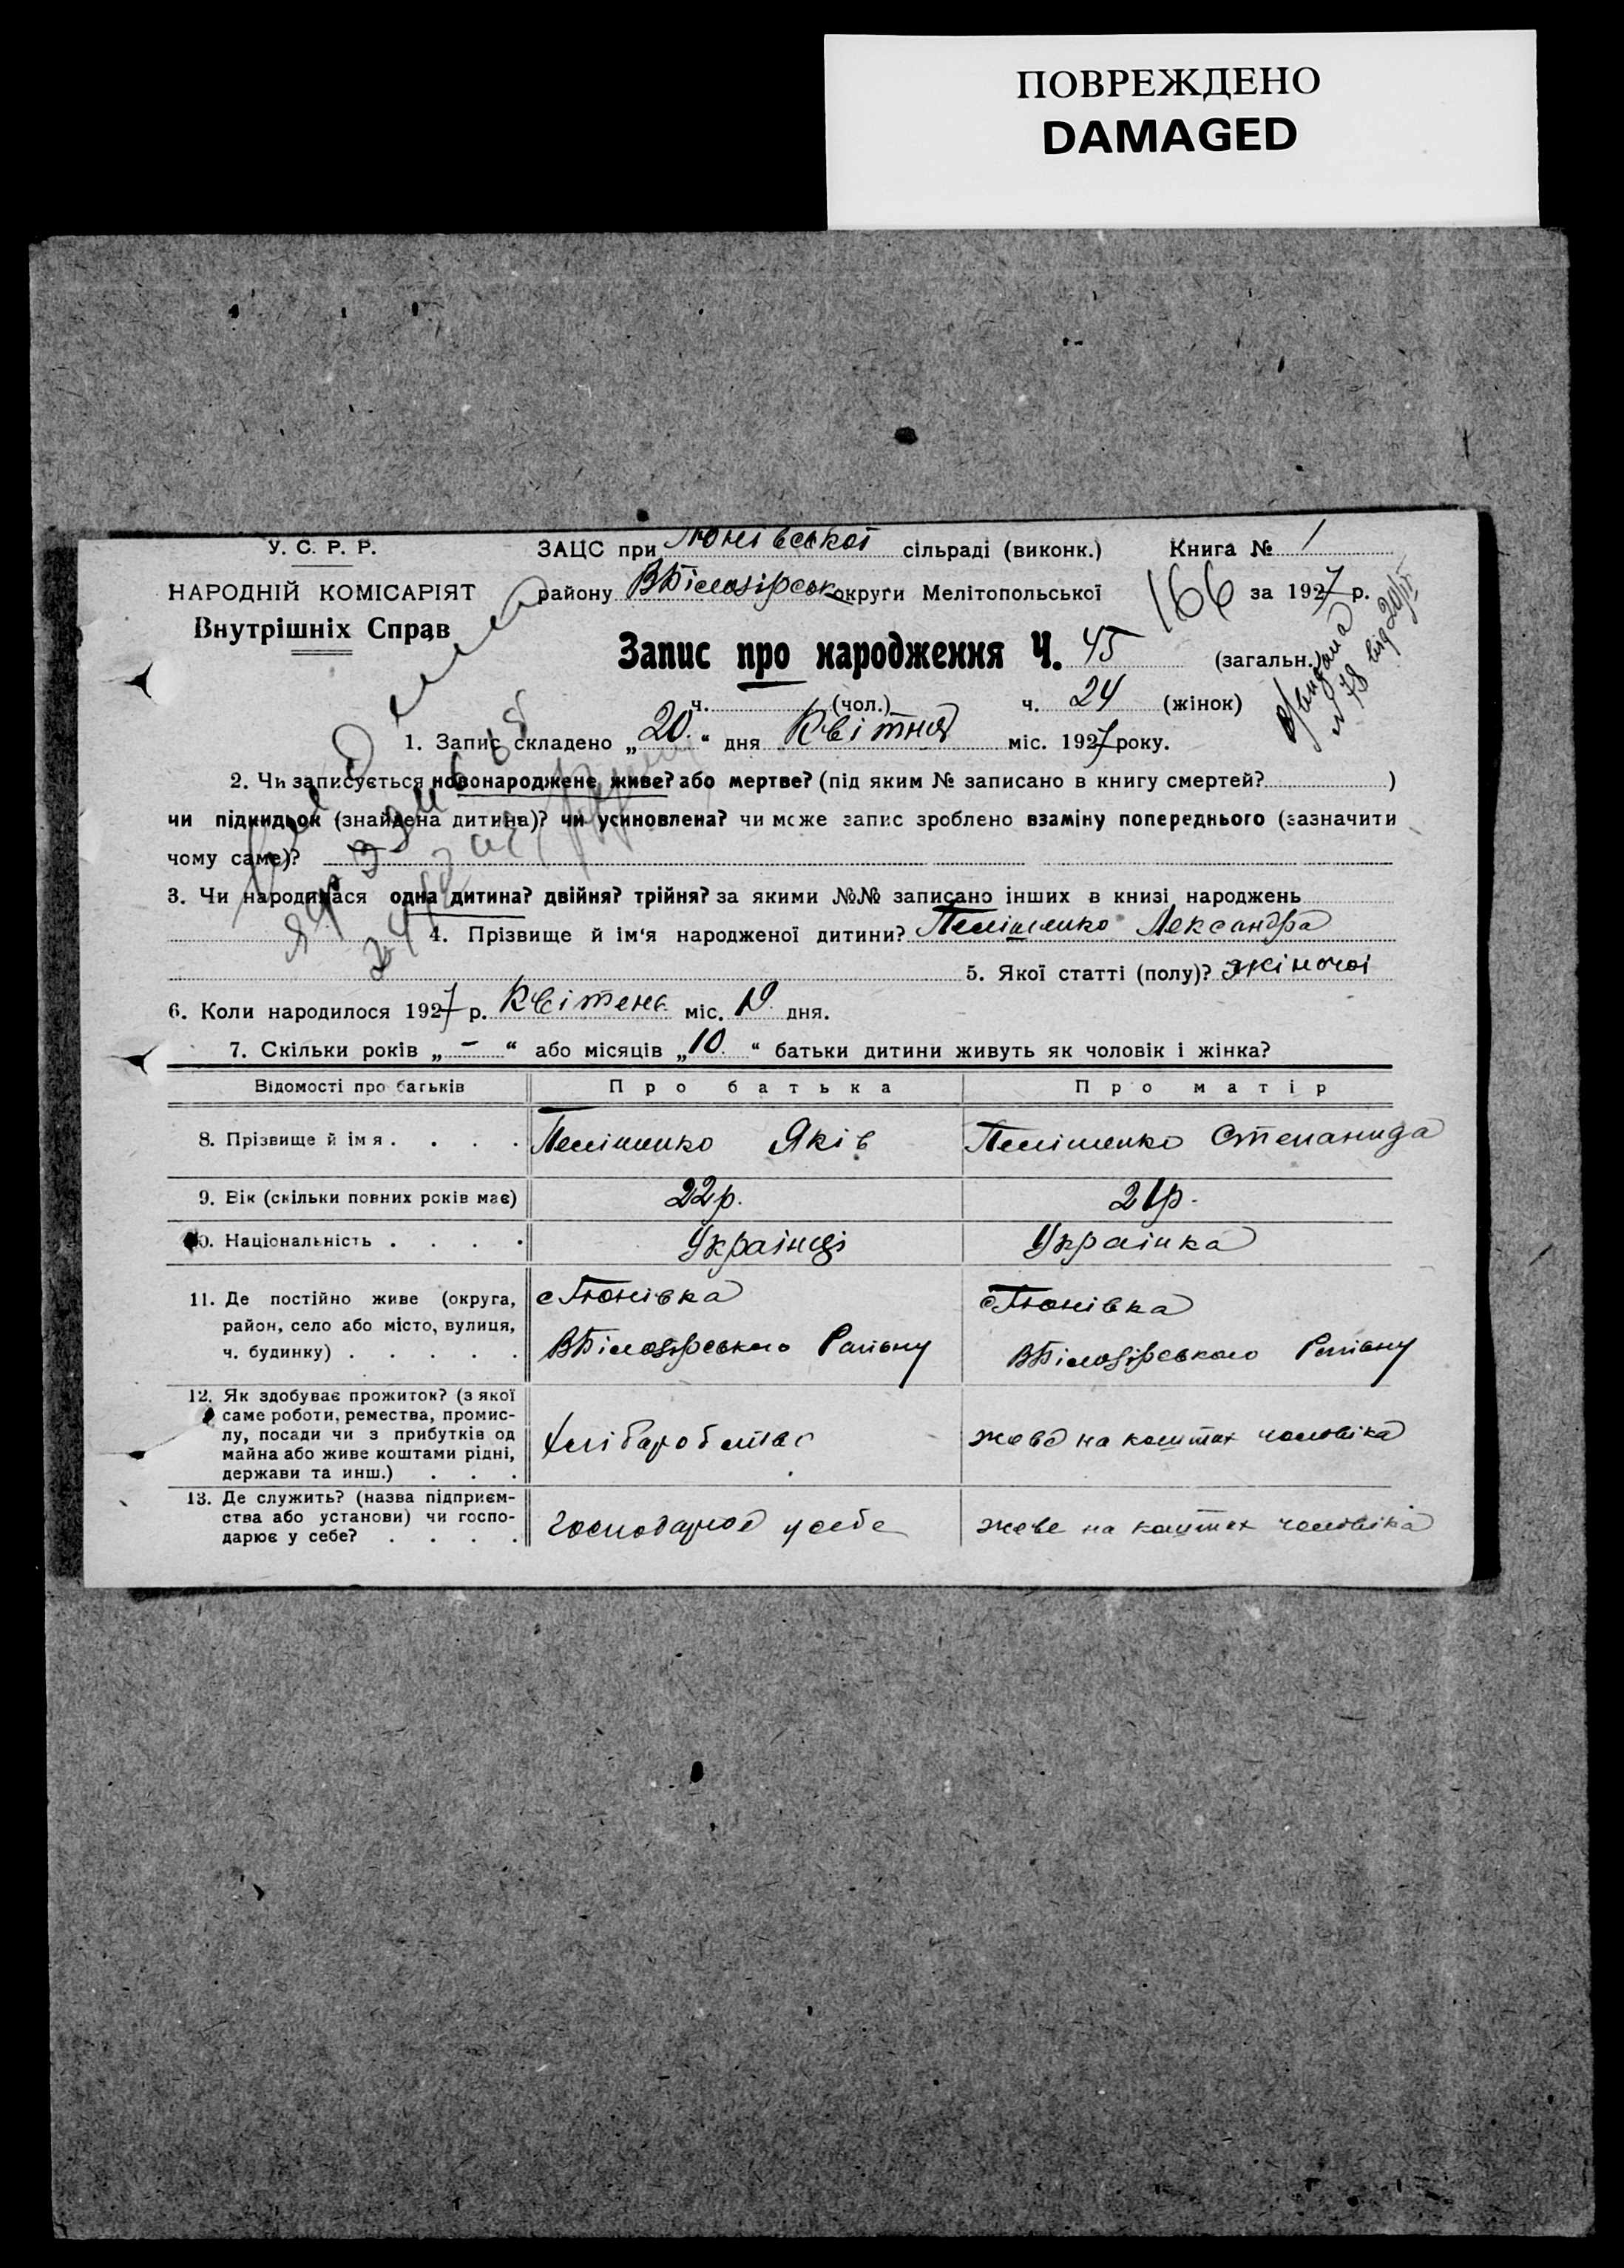 ПОВРЕЖДЕНО
DAMAGED
У. С. Р. Р.
НАРОДНІЙ КОМІСАРІЯТ
Внутрішніх Справ
ЗАЦС при Тюнівської сільраді (виконк.) Книга № 1
району ВБілозірськ округи Мелітопольської 166 за 1927 р.
Запис про народження Ч. 45 (загальн.)
№ 78 від 20/IV
ч. (чол.) ч. 24 (жінок)
1. Запис складено „20.“ дня Квітня міс. 1927 року.
2. Чи записується новонароджене живе? або мертве? (під яким № записано в книгу смертей? )
чи підкидьок (знайдена дитина)? чи усиновлена? чи може запис зроблено взаміну попереднього (зазначити
чому саме)?
3. Чи народилася одна дитина? двійня? трійня? за якими №№ записано інших в книзі народжень
4. Прізвище й ім‘я народженої дитини? Пелішенко Александра
5. Якої статті (полу)? жіночої
6. Коли народилося 1927 р. Квітень міс. 19. дня.
7. Скільки років „ - “ або місяців „10.“ батьки дитини живуть як чоловік і жінка?
Відомості про батьків Про батька Про матір
8. Прізвище й імя . . . . Пелішенко Яків Пелішенко Степанида
9. Вік (скільки повних років має) 22р. 21р.
10. Національність . . . . Українці Українка
11. Де постійно живе (округа, район, село або місто, вулиця, ч. будинку) . . . . .
с Тюнівка
ВБілозірського Району
с Тюнівка
ВБілозірського Району
12. Як здобуває прожиток? (з якої
саме роботи, ремества, промис-
лу, посади чи з прибутків од
майна або живе коштами рідні,
держави та инш.) . . .
хліборобством
живе на коштах чоловіка
13. Де служить? (назва підприєм-
ства або установи) чи госпо-
дарює у себе? . . . .
господарює у себе
живе на коштах чоловіка